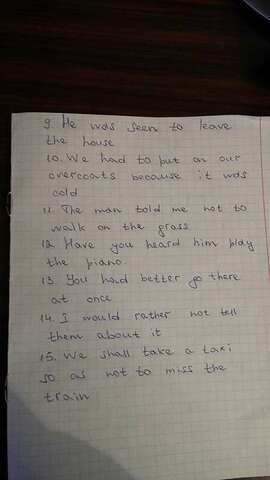 9. He was seen to leave
the house
10. We had to put on our
overcoats because it was
cold
11. The man told me not to
walk on the grass
12. Have you heard him play
the piano.
13. You had better go there
at once
14. I would rather not tell
them about it
15. We shall take a taxi
so as not to miss the
train